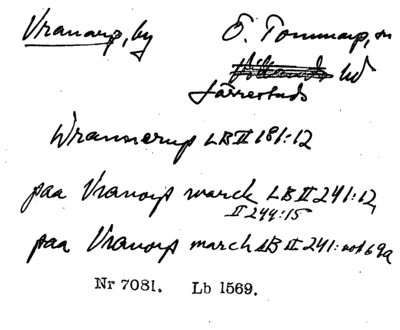 Vranarp, by Ö. Tommarp, sn
hd
Järrestads
Wrannerup LB II 181:12
paa Vranorp marck LB II 241:12,
II 244:15
paa Vranorp march LB II 241: not 69a
Nr 7081. Lb 1569.